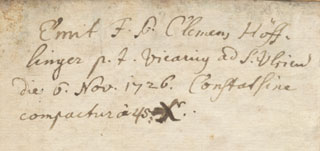 Emit F. P. Clemens Höff-
linger p. t. Vicarius ad S. Ulricū
die 6. Nov. 1726. Constat sine
compactura 45 Xr.